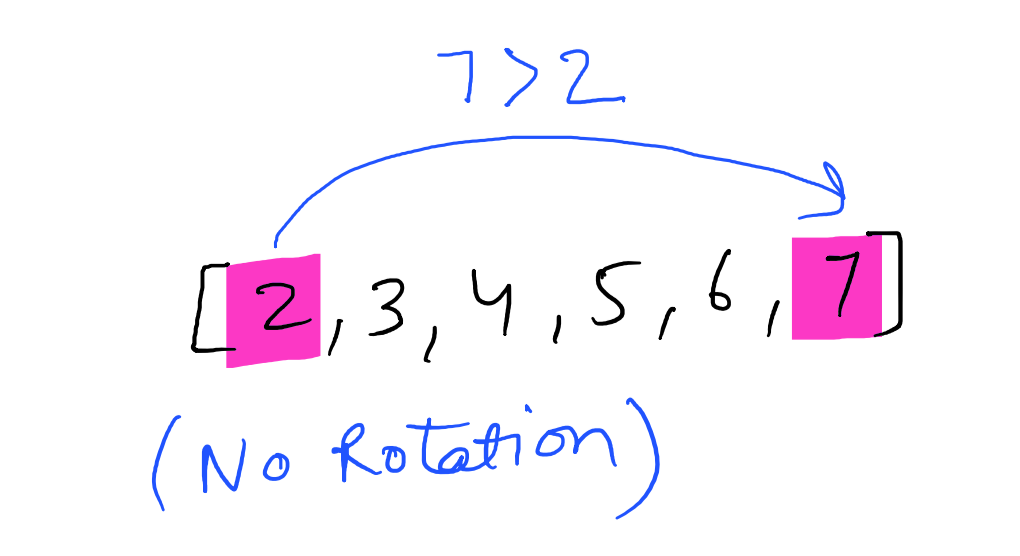 7>2
[2,3,4,5,6,7]
(No Rotation)